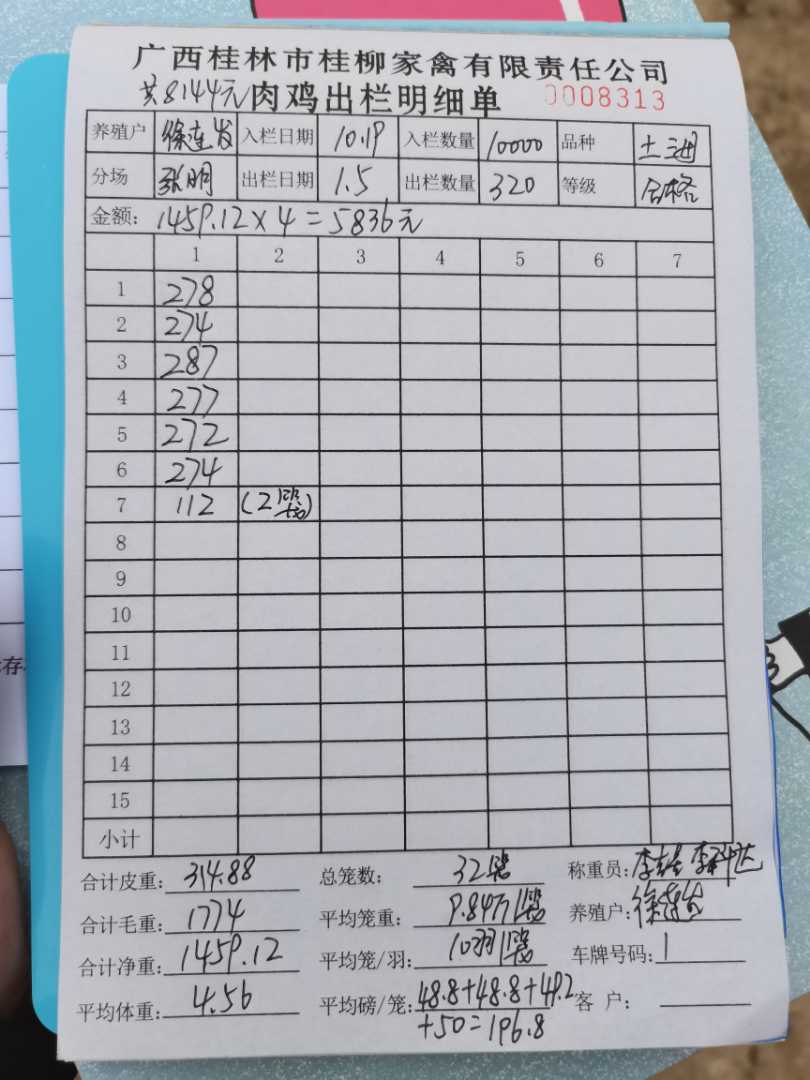 广西桂林市桂柳家禽有限责任公司
共8144元 肉鸡出栏明细单 0008313
养殖户 徐连发 入栏日期 10.19 入栏数量 10000 品种 土三
分场 张明 出栏日期 1.5 出栏数量 320 等级 合格
金额: 1459.12×4=5836元
1 2 3 4 5 6 7
1 278
2 274
3 287
4 277
5 272
6 274
7 112 (2笼)
8
9
10
11
12
13
14
15
小计
合计皮重: 314.88 总笼数: 32笼 称重员:
合计毛重: 1774 平均笼重: 9.84斤/笼 养殖户: 徐连发
合计净重: 1459.12 平均笼/羽: 10羽/笼 车牌号码: 1
平均体重: 4.56 平均磅/笼: 48.8+48.8+49.2 客 户:
+50=196.8
存